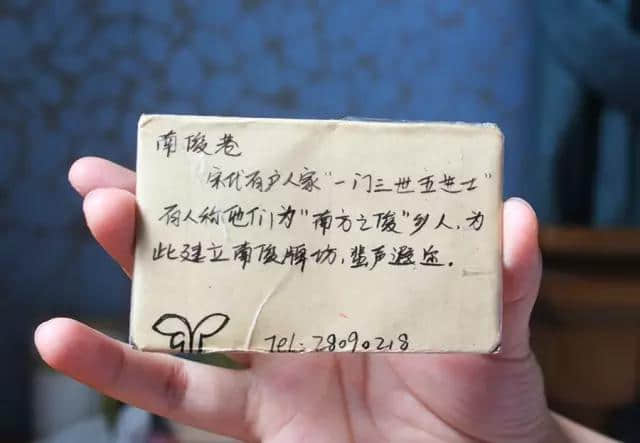 南俊巷
宋代有户人家“一门三世五进士”
有人称他们为“南方之俊”乡人,为
此建立南俊牌坊,蜚声遐迩。
TEL: 28090218